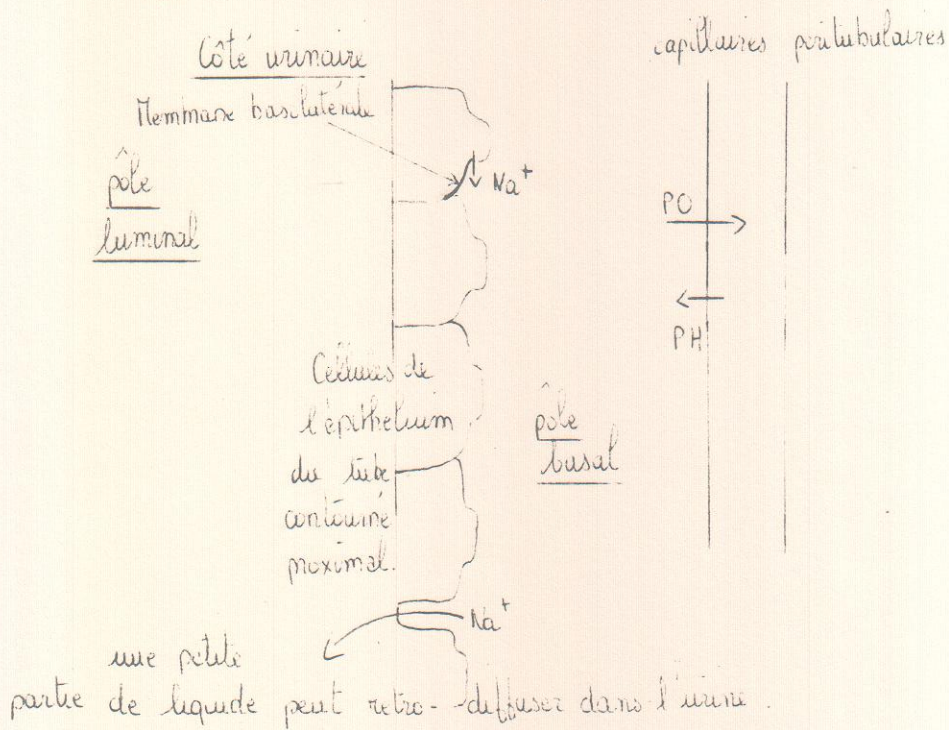 Côté urinaire
capillaires peritubulaires
Membrane basilatérale
pôle
luminal
Na⁺
PO
PH
Céllules de
l'épithelium
du tube
contourné
proximal.
pôle
basal
Na⁺
une petite
partie de liquide peut retro-diffuser dans l'urine.